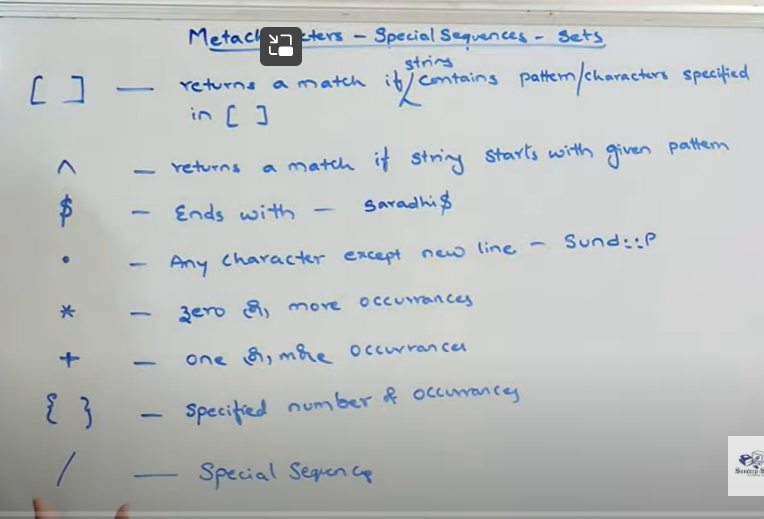 Metac cters - Special Sequences - Sets
[ ] — returns a match if string contains pattern/characters specified
in [ ]
^ — returns a match if string starts with given pattern
$ — Ends with — Saradhi$
. — Any character except new line — Sund..P
* — zero or more occurrances
+ — one or more occurrances
{ } — Specified number of occurrances
/ — Special Sequence